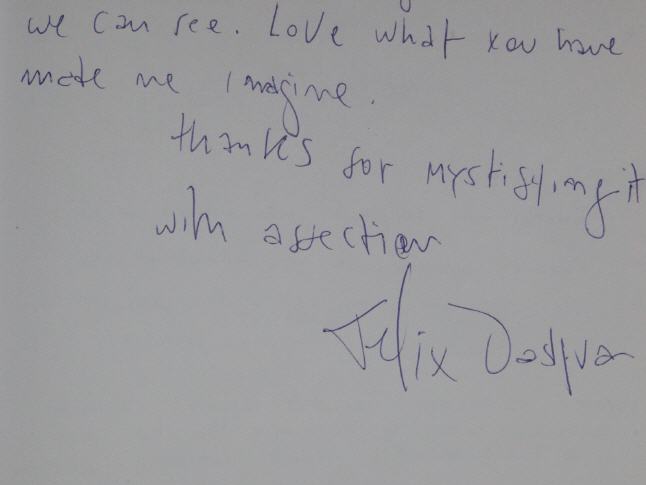 we can see. Love what you have
made me imagine.
thanks for mystifying it
with affection
Felix